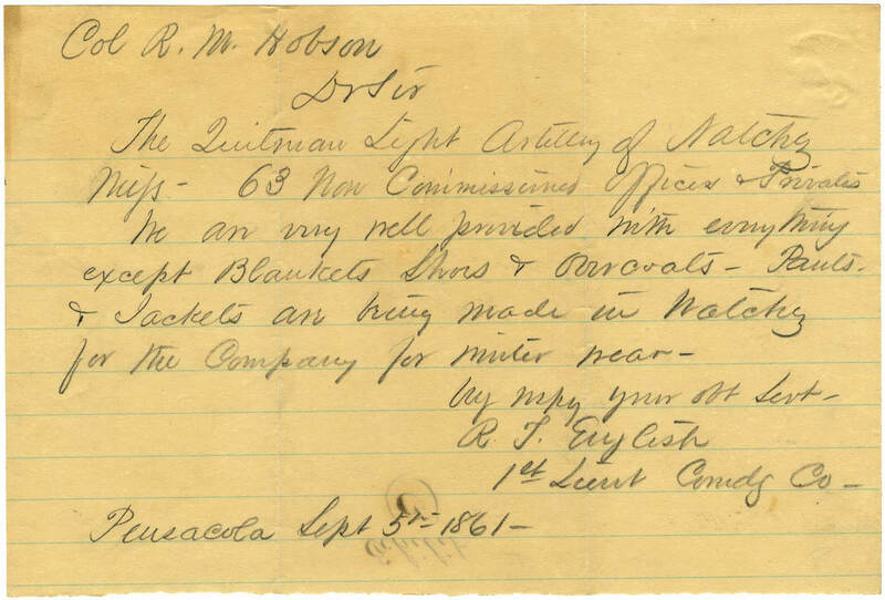 Col R. M. Hobson
Dr Sir
The Quitman Light Artillery of Natchez
Miss - 63 Non Commissioned Offices & Privates
We are very well provided with everything
except Blankets Shoes & Overcoats - Pants -
& Jackets are being made in Natchez
for the Company for winter wear -
Vry respy your obt Servt -
R. T. English
1st Lieut Comdg Co -
Pensacola Sept 5th 1861 -